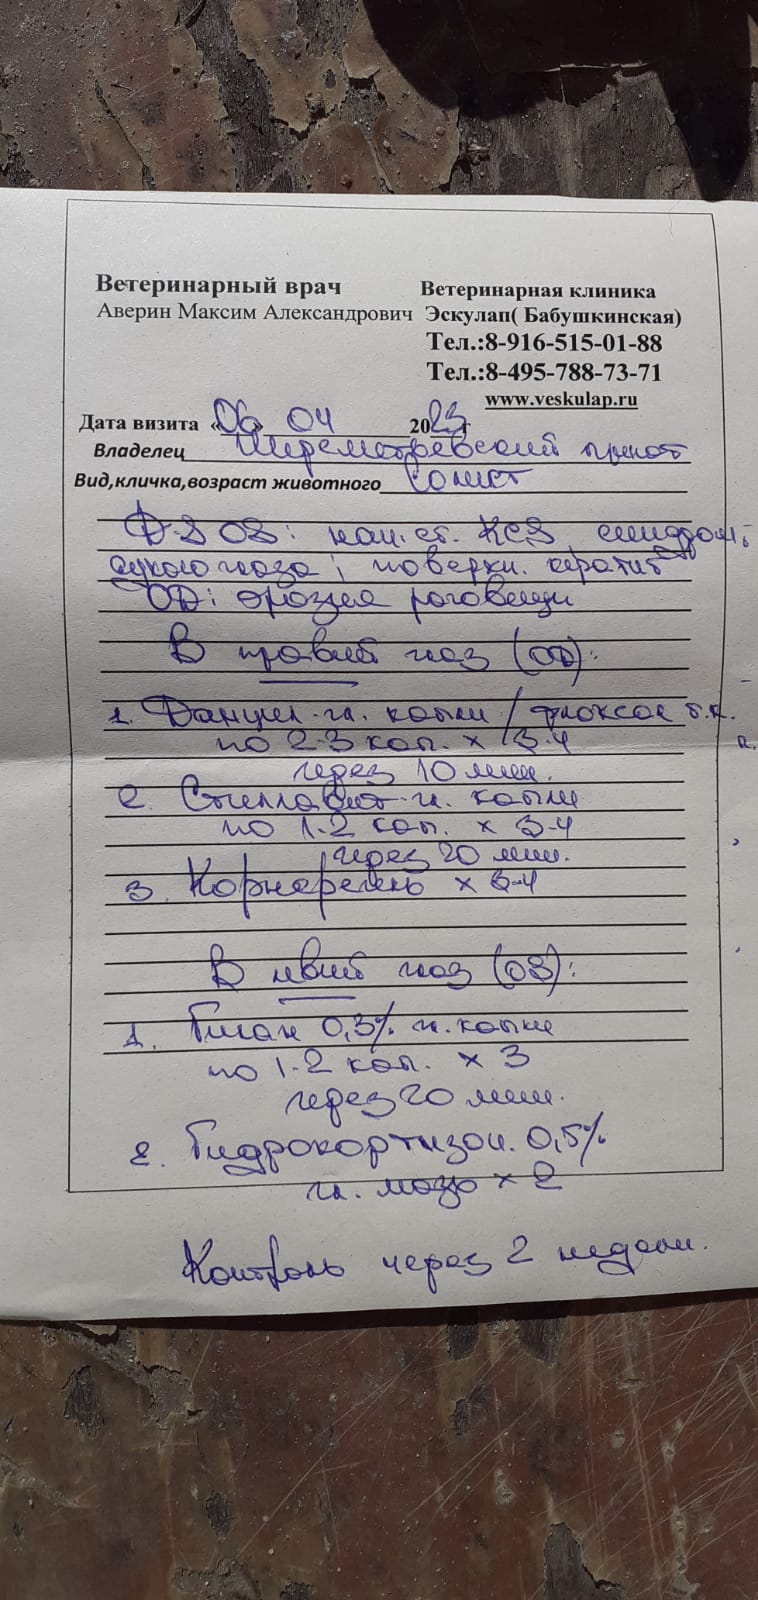 Ветеринарный врач
Аверин Максим Александрович
Ветеринарная клиника
Эскулап( Бабушкинская)
Тел.:8-916-515-01-88
Тел.:8-495-788-73-71
www.veskulap.ru
Дата визита «06» 04 2023 г
Владелец Шереметьевский приют
Вид,кличка,возраст животного Солист
D-S OS: нач. ст. КСЗ синдром
сухого глаза; поверхн. кератит
OD: эрозия роговицы
В правый глаз (OD):
1. Данцил гл. капли / флоксал
по 2-3 кап. x 3-4
через 10 мин.
2. Стиллавит гл. капли
по 1-2 кап. x 3-4
через 20 мин.
3. Корнерегель x 3-4
В левый глаз (OS):
1. Гилан 0,3% гл. капли
по 1-2 кап. x 3
через 20 мин.
2. Гидрокортизон. 0,5%
гл. мазь x 2
Контроль через 2 недели.